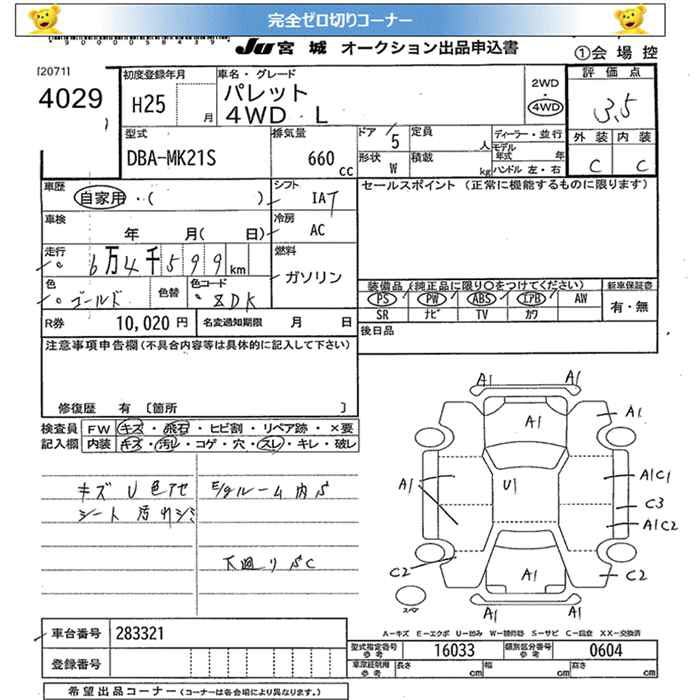 完全ゼロ切りコーナー
JU 宮城 オークション出品申込書
①会場控
[2071]
4029
初度登録年月
H25
月
車名・グレード
パレット
4WD L
2WD
・
4WD
評価点
3.5
外装 内装
C C
型式
DBA-MK21S
排気量
660 cc
ドア 5
定員 人
形状 W
積載 kg
ディーラー・並行
モデル年式 年
ハンドル 左・右
車歴
自家用・( )
シフト
IAT
セールスポイント (正常に機能するものに限ります)
車検
年 月( 日)
冷房
AC
走行
6万4千599km
燃料
ガソリン
色
ゴールド
色替
色コード
ZDK
装備品 (純正品に限り○をつけてください)
新車保証書
PS PW ABS エアB AW
有・無
SR ナビ TV カワ
R券 10,020円
名変通知期限 月 日
後日品
注意事項申告欄(不具合内容等は具体的に記入して下さい)
修復歴 有 〔箇所 〕
検査員 FW キズ・飛石・ヒビ割・リペア跡・×要
記入欄 内装 キズ・汚レ・コゲ・穴・スレ・キレ・破レ
キズ U 色アセ
シート 汚れシミ
E/gルーム 内 S
下廻り SC
A1 A1
A1
A1
A1
U1
A1C1
C3
A1C2
C2
C2
A1
A1 A1
スペア
A-キズ E-エクボ U-凹み W-補修跡 S-サビ C-腐食 XX-交換済
車台番号 283321
登録番号
型式指定番号 参考 16033
類別区分番号 参考 0604
車庫証明用 参考 長さ cm 幅 cm 高さ cm
希望出品コーナー (コーナーは各会場により異なります。)